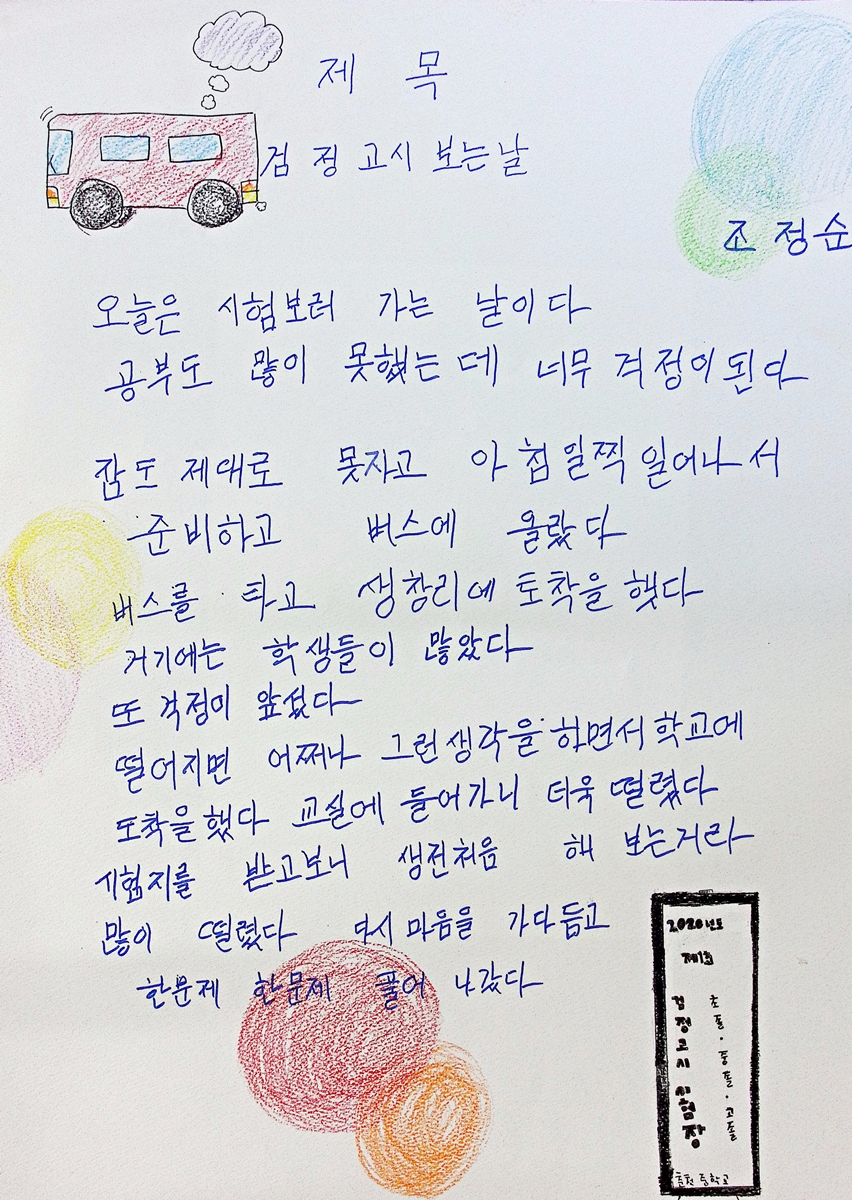 제 목
검 정 고시 보는 날
조 정 순
오늘은 시험보러 가는 날이다
공부도 많이 못했는데 너무 걱정이 된다
잠도 제대로 못자고 아침 일찍 일어나서
준비하고 버스에 올랐다
버스를 타고 생창리에 도착을 했다
거기에는 학생들이 많았다
또 걱정이 앞섰다
떨어지면 어쩌나 그런 생각을 하면서 학교에
도착을 했다 교실에 들어가니 더욱 떨렸다
시험지를 받고보니 생전처음 해 보는거라
많이 떨렸다 다시 마음을 가다듬고
한문제 한문제 풀어 나갔다
2020년도
제1회
초졸·중졸·고졸
검정고시 시험장
춘천 중학교